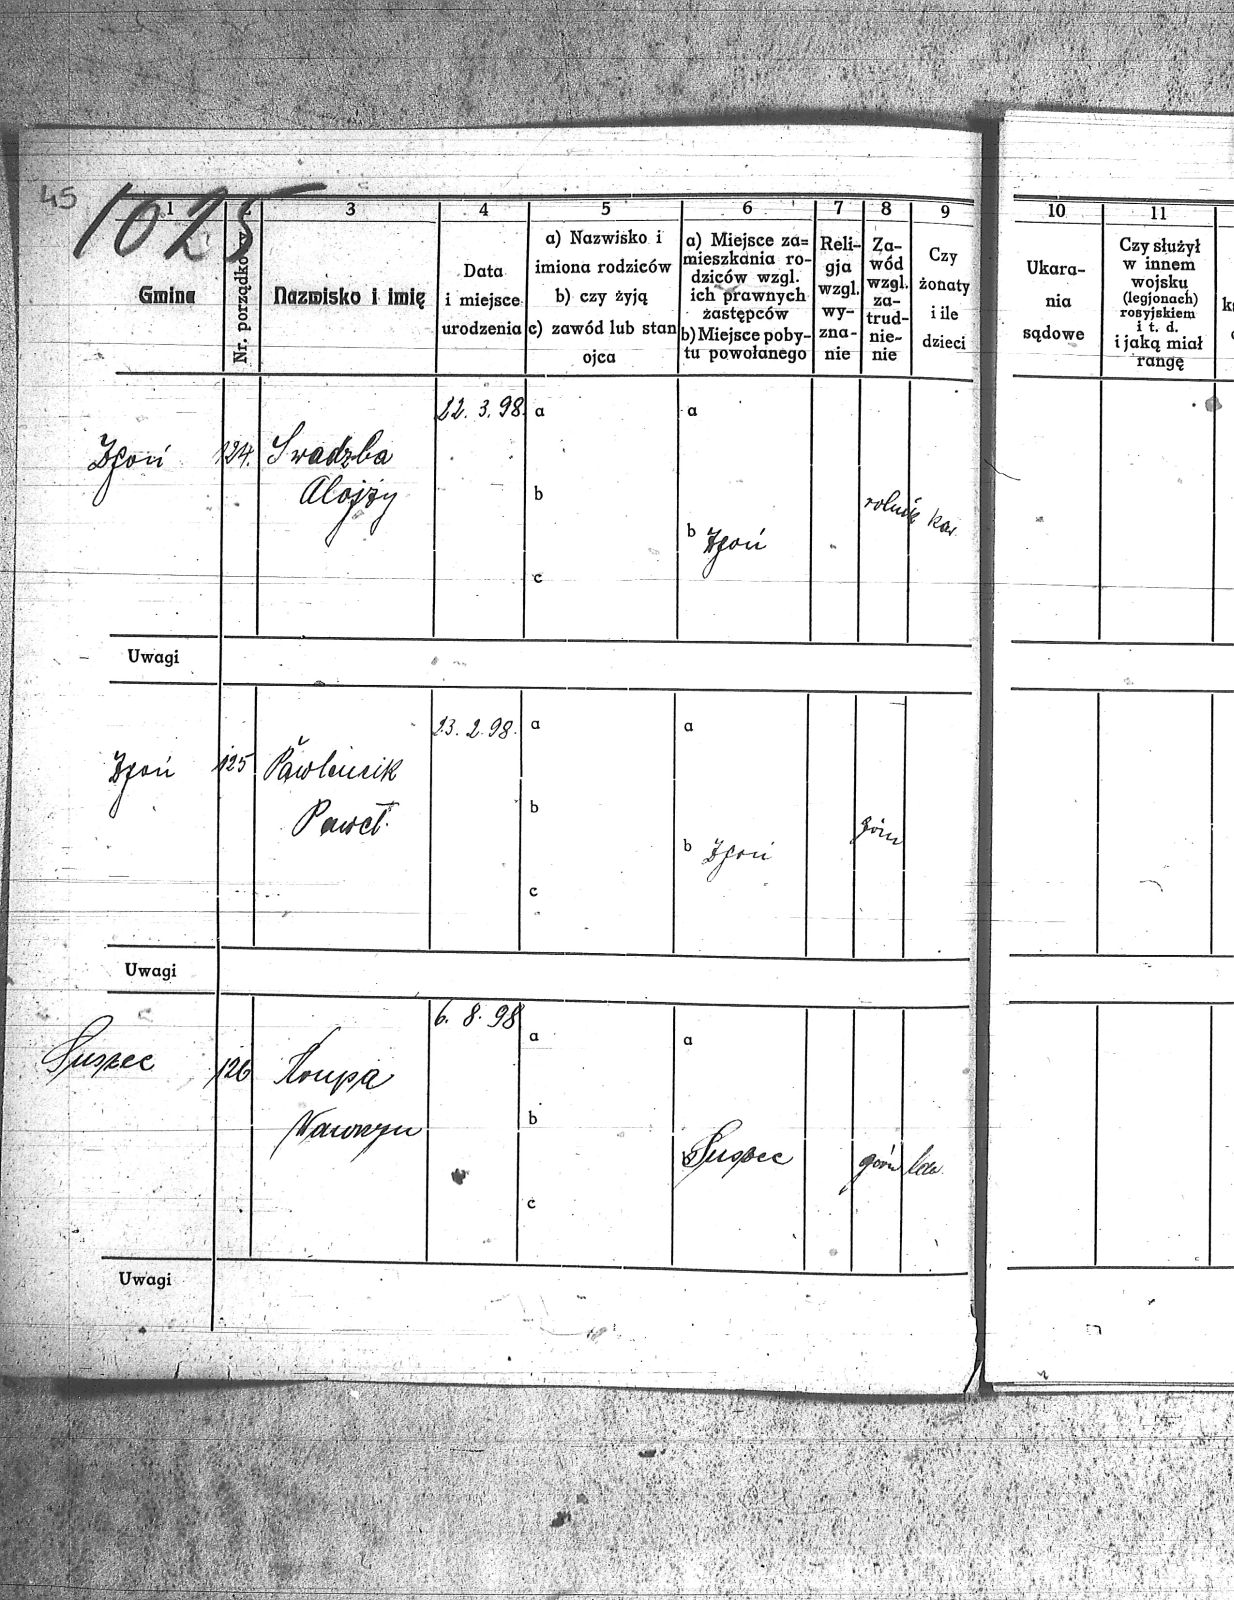 45
1025
1 2 3 4 5 6 7 8 9 10 11
Gmina
Nr. porządkow
Nazwisko i imię
Data
i miejsce
urodzenia
a) Nazwisko i
imiona rodziców
b) czy żyją
c) zawód lub stan
ojca
a) Miejsce za=
mieszkania ro-
dziców wzgl.
ich prawnych
zastępców
b) Miejsce poby-
tu powołanego
Reli-
gja
wzgl.
wy-
zna-
nie
Za-
wód
wzgl.
za-
trud-
nie-
nie
Czy
żonaty
i ile
dzieci
Ukara-
nia
sądowe
Czy służył
w innem
wojsku
(legjonach)
rosyjskiem
i t. d.
i jaką miał
rangę
22. 3. 98. a a
Zgoń 124. Swadzba
Alojzy b
rolnik kaw.
b Zgoń
c
Uwagi
23. 2. 98. a a
Zgoń 125
Paweł b
górn
b Zgoń
c
Uwagi
6. 8. 98 a a
Suszec 126 Krupa
Wawrzyn b
b Suszec górn
c
Uwagi